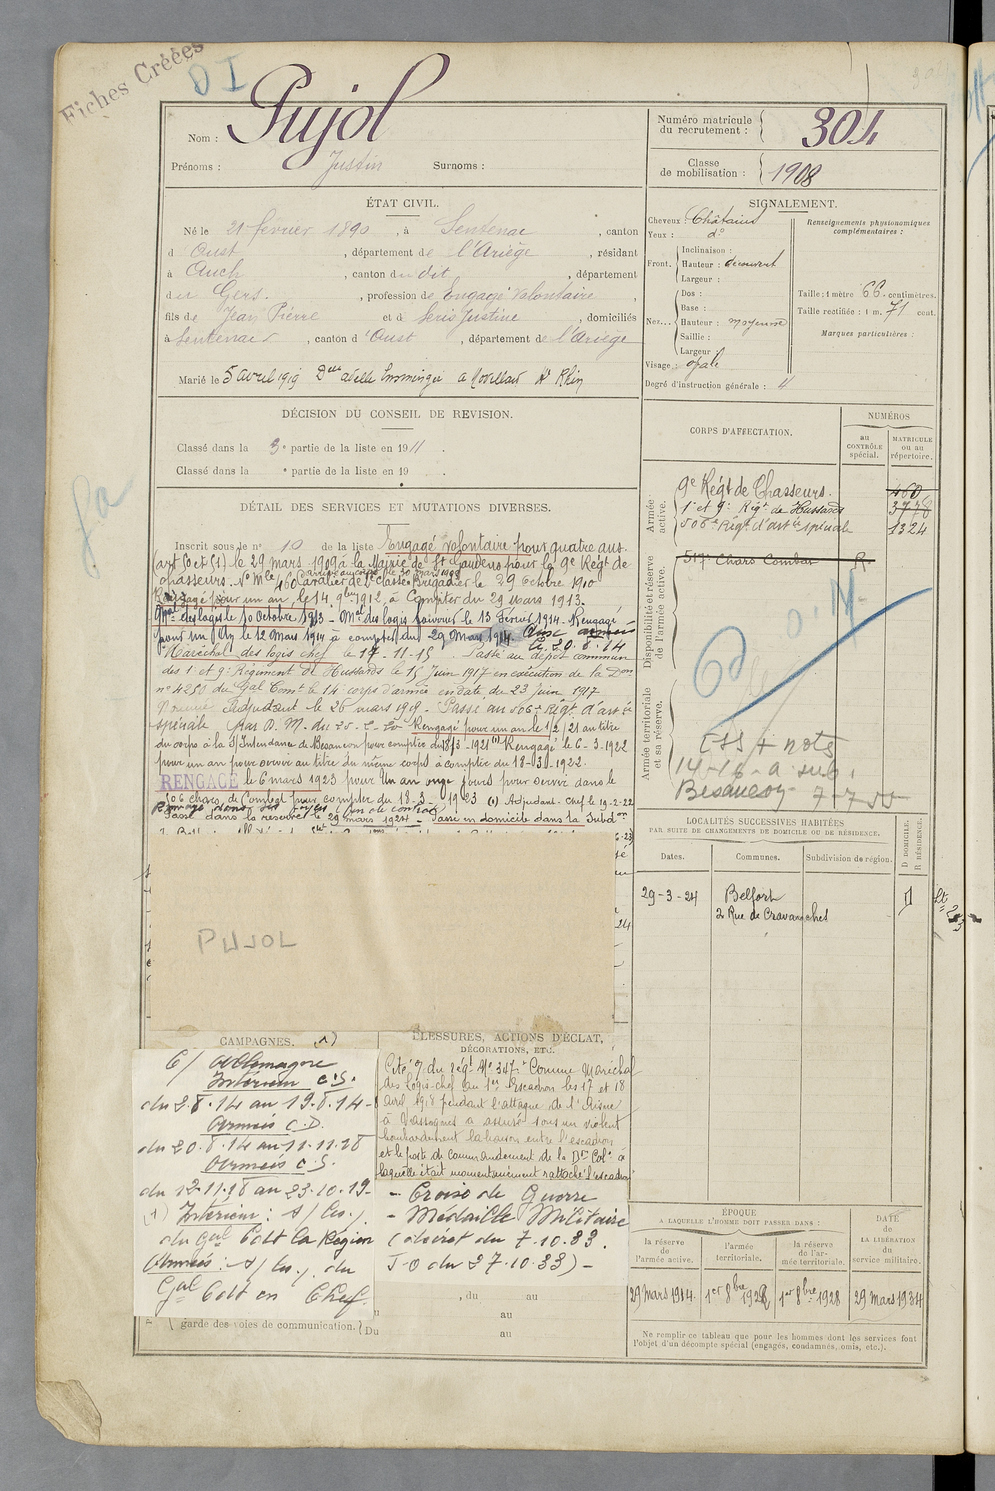 Fiches Créées
DI
Nom : Pujol
Prénoms : Justin Surnoms :
Numéro matricule du recrutement : 304
Classe de mobilisation : 1908
ÉTAT CIVIL.
Né le 21 février 1890, à Sentenac, canton
d'Oust, département de l'Ariège, résidant
à Auch, canton du dit, département
du Gers, profession de Engagé Volontaire,
fils de Jean Pierre et de Seris Justine, domiciliés
à Sentenac, canton d'Oust, département de l'Ariège
Marié le 5 avril 1919 Delle
DÉCISION DU CONSEIL DE REVISION.
Classé dans la 3e partie de la liste en 1911.
Classé dans la e partie de la liste en 19 .
SIGNALEMENT.
Cheveux : Châtains
Yeux : do
Front. Inclinaison :
Hauteur : découvert
Largeur :
Nez... Dos :
Base :
Hauteur : moyenne
Saillie :
Largeur :
Visage : ovale
Renseignements physionomiques complémentaires :
Taille : 1 mètre 66 centimètres.
Taille rectifiée : 1 m. 71 cent.
Marques particulières :
Degré d'instruction générale : 4
DÉTAIL DES SERVICES ET MUTATIONS DIVERSES.
Inscrit sous le no 10 de la liste Engagé volontaire pour quatre ans.
le 29 mars 1909 à la Mairie de St Gaudens pour le 9e Régt de
chasseurs. No Mle 460 Cavalier de 2e classe. Brigadier le 29 octobre 1910
Rengagé pour un an, le 14 9bre 1912, à compter du 29 mars 1913.
Mal des logis le 10 octobre 1913 - 13 Février 1914 - Rengagé
pour un an le 12 Mars 1914 à compter du 29 Mars 1914. Aux armées
le 20.8.14
Maréchal des logis chef le 17-11-15. Passé au dépôt commun
des 1er et 9e Régiment de Hussards le 15 Juin 1917 en exécution de la Don
no 4250 du Gal Comt le 14e corps d'armée en date du 23 Juin 1917
Nommé Adjudant le 26 mars 1919. Passé au 506e Régt d'artie
spéciale par D. M. du Rengagé pour un an le au titre
du corps à la S/Intendance de Besançon pour compter du 18/3-1921 (1) Rengagé le 6-3-1922
pour un an pour servir au titre du même corps à compter du 18-3-1922.
RENGAGÉ le 6 mars 1923 pour un an onze jours pour servir dans le
506 chars de Combat pour compter du 18-3-1923 (1) Adjudant-Chef le 19-2-22
Rentré dans ses foyers (fin de contrat)
Passé dans la réserve le 29 mars 1924 - Passé en domicile dans la Subdon
PUJOL
CORPS D'AFFECTATION.
NUMÉROS
au CONTRÔLE spécial.
MATRICULE ou au répertoire.
Armée active.
9e Régt de Chasseurs. 460
1er et 9e Régt de Hussards 3778
506e Régt d'artie spéciale 1324
Disponibilité et réserve de l'armée active.
517e Chars Combat R.
Armée territoriale et sa réserve.
ESS + nots
14-18-a sub.
Besançon 7-7-55
LOCALITÉS SUCCESSIVES HABITÉES
PAR SUITE DE CHANGEMENTS DE DOMICILE OU DE RÉSIDENCE.
Dates. Communes. Subdivision de région. D DOMICILE. R RÉSIDENCE.
29-3-24 Belfort D
2 Rue de Cravanches
CAMPAGNES. (1)
C/ Allemagne
Intérieur C.S.
du 2.8.14 au 19.8.14-
Armées C.D.
du 20.8.14 au 11.11.18
Armées C.S.
du 12.11.18 au 23.10.19-
(1) Intérieur : s/ les /
du Gal Codt la Région
Armées : s/ les / du
Gal Codt en Chef
garde des voies de communication. Du
BLESSURES, ACTIONS D'ÉCLAT,
DÉCORATIONS, ETC.
Cité O. du régt No 347 "Comme Maréchal
des Logis-chef au 1er Escadron les 17 et 18
avril 1918 pendant l'attaque de l'Aisne
à Vassognes a assuré sous un violent
bombardement la liaison entre l'escadron
et le poste de commandement de la Don Colle à
laquelle était momentanément rattaché l'escadron
- Croix de Guerre
- Médaille Militaire
(décret du 7.10.33.
J-O du 27.10.33) -
, du au
au
au
ÉPOQUE
A LAQUELLE L'HOMME DOIT PASSER DANS :
la réserve de l'armée active.
l'armée territoriale.
la réserve de l'armée territoriale.
DATE de LA LIBÉRATION du service militaire.
29 mars 1914. 1er 8bre 1928 1er 8bre 1928 29 Mars 1934
Ne remplir ce tableau que pour les hommes dont les services font
l'objet d'un décompte spécial (engagés, condamnés, omis, etc.).